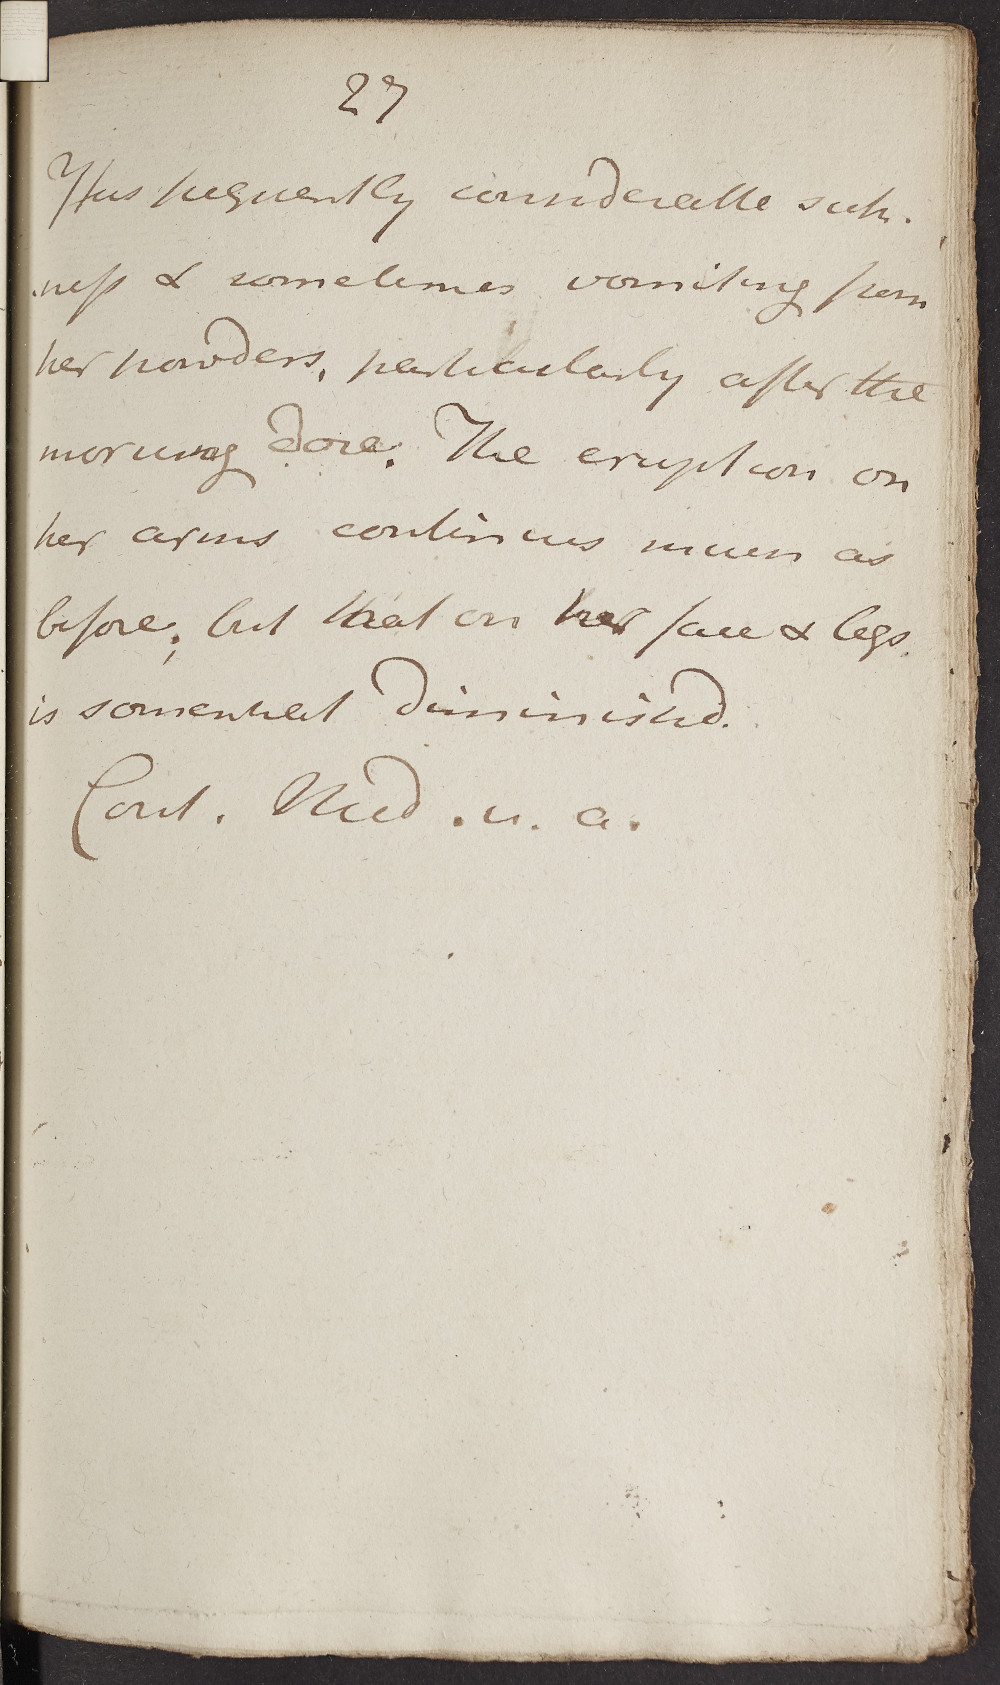 27
Has frequently considerable sick-
-ness & sometimes vomiting from
her powders, particularly after the
morning dose. The eruption on
her arms continues much as
before; but that on her face & legs
is somewhat diminished.
Cont. Med. u. a.